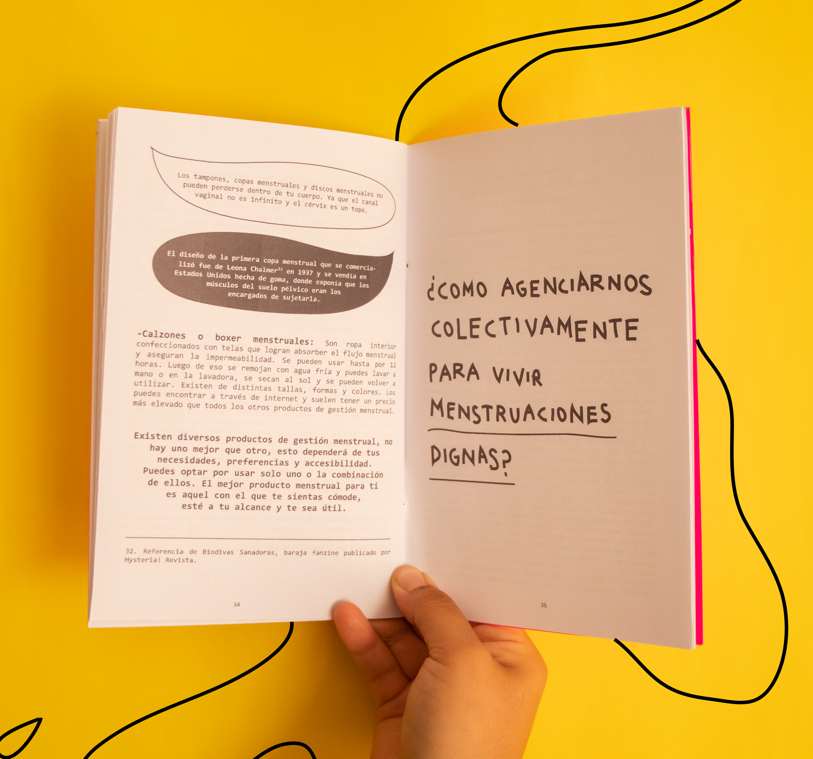 Los tampones, copas menstruales y discos menstruales no
pueden perderse dentro de tu cuerpo. Ya que el canal
vaginal no es infinito y el cérvix es un tope.
El diseño de la primera copa menstrual que se comercia-
lizó fue de Leona Chalmer³² en 1937 y se vendía en
Estados Unidos hecha de goma, donde exponía que los
músculos del suelo pélvico eran los
encargados de sujetarla.
-Calzones o boxer menstruales: Son ropa interior
confeccionados con telas que logran absorber el flujo menstrual
y aseguran la impermeabilidad. Se pueden usar hasta por 12
horas. Luego de eso se remojan con agua fría y puedes lavar a
mano o en la lavadora, se secan al sol y se pueden volver a
utilizar. Existen de distintas tallas, formas y colores. Los
puedes encontrar a través de internet y suelen tener un precio
más elevado que todos los otros productos de gestión menstrual.
Existen diversos productos de gestión menstrual, no
hay uno mejor que otro, esto dependerá de tus
necesidades, preferencias y accesibilidad.
Puedes optar por usar solo uno o la combinación
de ellos. El mejor producto menstrual para ti
es aquel con el que te sientas cómode,
esté a tu alcance y te sea útil.
32. Referencia de Biodivas Sanadoras, baraja fanzine publicado por
Hysteria! Revista.
34
¿COMO AGENCIARNOS
COLECTIVAMENTE
PARA VIVIR
MENSTRUACIONES
DIGNAS?
35